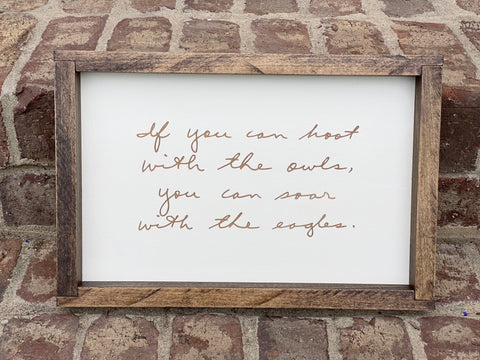 If you can hoot
with the owls,
you can soar
with the eagles.